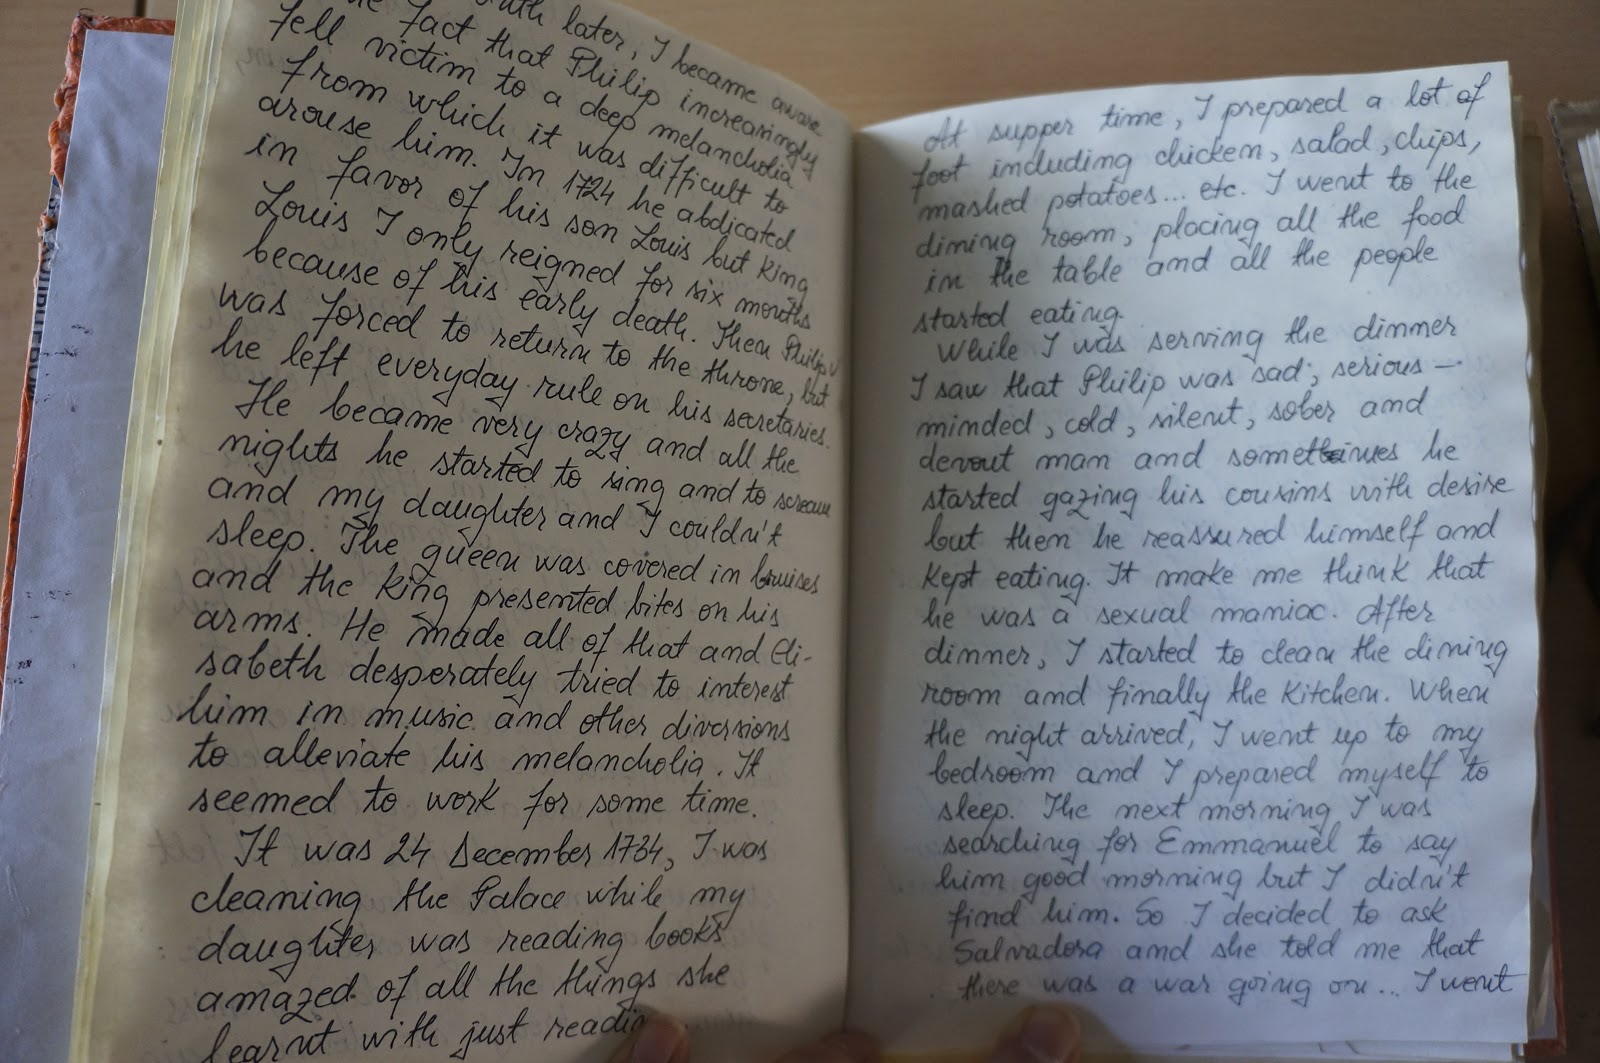 later, I became aware
fact that Philip increasingly
fell victim to a deep melancholia
from which it was difficult to
arouse him. In 1724 he abdicated
in favor of his son Louis but King
Louis I only reigned for six months
because of his early death. Then Philip V
was forced to return to the throne, but
he left everyday rule on his secretaries.
He became very crazy and all the
nights he started to sing and to scream
and my daughter and I couldn't
sleep. The queen was covered in bruises
and the King presented bites on his
arms. He made all of that and Eli-
sabeth desperately tried to interest
him in music and other diversions
to alleviate his melancholia. It
seemed to work for some time.
It was 24 December 1734, I was
cleaning the Palace while my
daughter was reading books
amazed of all the things she
learnt with just
At supper time, I prepared a lot of
foot including chicken, salad, chips,
mashed potatoes... etc. I went to the
dining room, placing all the food
in the table and all the people
started eating.
While I was serving the dinner
I saw that Philip was sad, serious-
minded, cold, silent, sober and
devout man and sometimes he
started gazing his cousins with desire
but then he reassured himself and
kept eating. It make me think that
he was a sexual maniac. After
dinner, I started to clean the dining
room and finally the kitchen. When
the night arrived, I went up to my
bedroom and I prepared myself to
sleep. The next morning I was
searching for Emmanuel to say
him good morning but I didn't
find him. So I decided to ask
Salvadora and she told me that
there was a war going on... I went